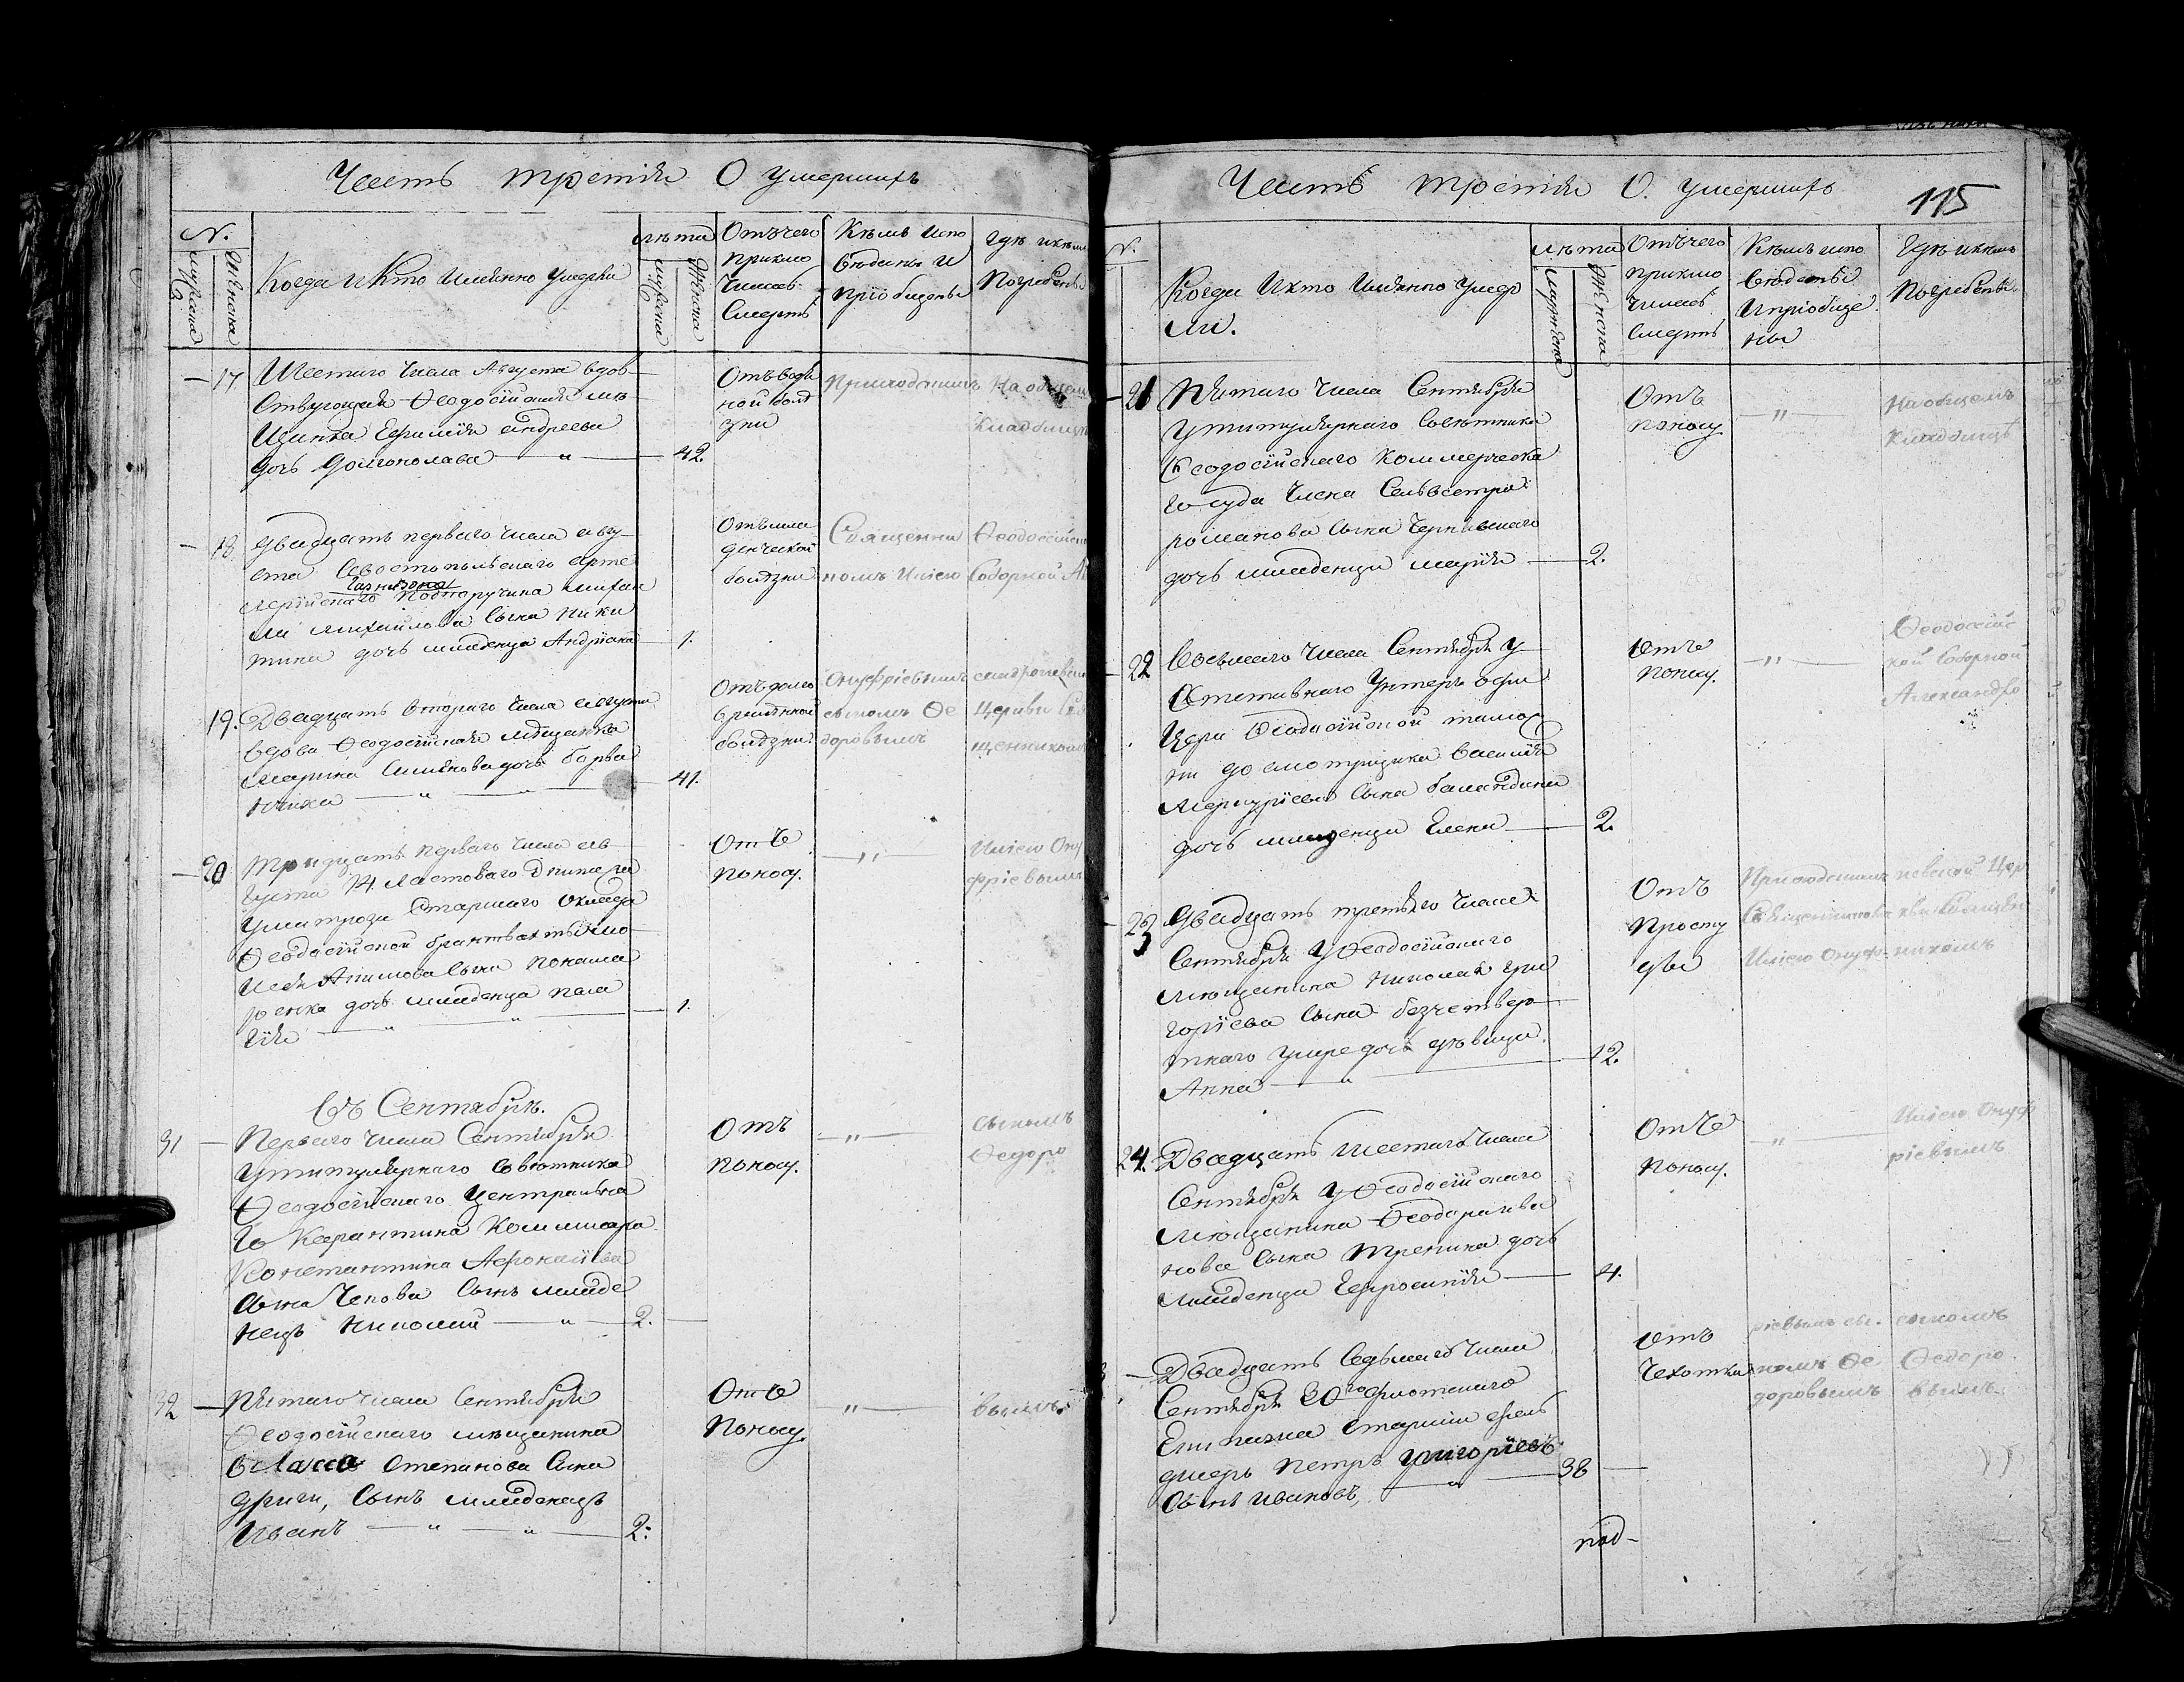 Часть третія О умершихъ
N.
мужеска
женска
Когда и кто имянно умерли
лѣта
мужеска
женска
Отъ чего
приклю
чилась
Смерть
Кѣмъ испо
вѣданы и
пріобщены
Гдѣ и кѣмъ
Погребены
17
Шестаго числа Августа вдов
ствующая Ѳеодосійская мѣ
щанка Ефимія Андреева
дочь Долгополава
42.
Отъ водя
ной болѣ
зни
Приходскимъ
На общемъ
кладбищѣ
18
двадцать перваго числа авгу
ста Севостопольскаго Арти
гарнизона
лерійскаго подпоручика Михаи
ла Михайлова сына Ники
тина дочь младенца Андріана
1.
Отъ мла
денческой
болѣзни
Священни
комъ Иліею
Ѳеодосійской
Соборной
19.
Двадцать втораго числа августа
вдова Ѳеодосійская мѣщанка
Марина Симянова дочь Горба
41.
Отъ долго
врѣмѣнной
болѣзни
Онуфріевымъ
сыномъ Ѳе
доровымъ
Церкви Свя
щенникомъ
20
Тридцать перваго числа ав
густа 14 Ластоваго Экипажа
Старшаго
Ѳеодосійской брантвахты
Акимова сына Понама
ренка дочь младенца Пела
гія
1.
Отъ
поносу.
Иліею Ону
фріевымъ
Въ Сентябрѣ.
31
Перваго числа Сентября
у титулярнаго Совѣтника
Ѳеодосійскаго Центральна
го Карантина Коммисара
Константина Афонасіева
сына Чепова Сынъ младе
нецъ Николай
2.
Отъ
поносу.
сыномъ
Ѳедоро
32
Пятаго числа Сентября
Ѳеодосійскаго мѣщанина
Власа Степанова Сына
Дриги, Сынъ младенецъ
Иванъ
2.
Отъ
Поносу.
вымъ.
Часть третія О. умершихъ
115
N.
Когда и кто имянно умер
ли.
лѣта
мужеска
женска
Отъ чего
приклю
чилась
смерть
Кѣмъ испо
вѣданы
и пріобще
ны
Гдѣ и кѣмъ
Погребены
21
Пятаго числа Сентября
у титулярнаго Совѣтника
Ѳеодосійскаго Коммерческа
го суда Члена Сельвестра
романова сына Чернявскаго
дочь младенца Марія
2.
Отъ
поносу
На общемъ
кладбищѣ
22
Восьмаго числа Сентября у
Отставнаго Унтеръ офи
цера Ѳеодосійской тамож
ни досмотрщика Василія
Меркуріева сына Баландина
дочь младенца Елена
2.
Отъ
поносу.
Ѳеодосійс
кой Соборной
Александро
23
Двадцать третьяго числа
Сентября у Ѳеодосійскаго
Мѣщанина Николая Гри
горіева сына Безчетвер
тнаго умре дочь дѣвица
Анна
12.
Отъ
Просту
ды
Приходскимъ
Священникомъ
Иліею Онуф
невской Цер
кви Священ
никомъ
24.
Двадцать шестаго числа
Сентября у Ѳеодосійскаго
Мѣщанина Ѳеодора Ива
нова сына Тренина дочь
младенца Ефросинія
4.
Отъ
Поносу.
Иліею Онуф
ріевымъ
Двадцать седьмаго числа
Сентября 30го флотскаго
Екипажа старшій фель
дшеръ Петръ Григоріевъ
сынъ Ивановъ,
38
Отъ
Чахотки
ріевымъ сы
номъ Ѳе
доровымъ
сыномъ
Ѳедоро
вымъ